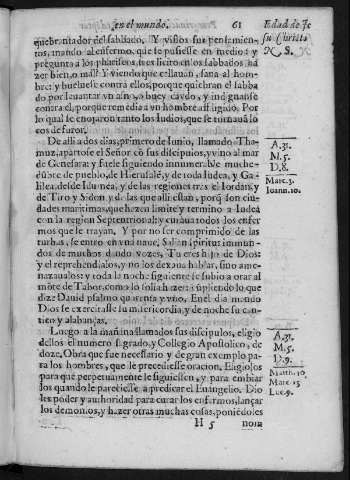 en el mundo. 61 Edad de Je
su Christo
N. S.
quebrantador del sabado. Y vistos sus pensamien-
tos, mando al enfermo, que se pusiesse en medio: y
pregunto a los phariseos, si es licito en los sabbados ha
zer bien, o mal? Y viendo que callauan, sana al hom-
bre: y bueluese contra ellos, porque quiebran el sabba
do por leuantar vn asno, o buey caydo, y indignanse
contra el, porque remedia a vn hombre affligido. Por
lo qual se enojaron tanto los Iudios, que se tornauã lo
cos de furor.
De alli a dos dias, primero de Iunio, llamado Tha-
muz, apartose el Señor cõ sus discipulos, y vino al mar
de Genesara: y fuele siguiendo innumerable muche-
dũbre de pueblo, de Hierusalẽ, y de toda Iudea, y Ga-
lilea, desde Idumea, y de las regiones tras el Iordan, y
de Tiro y Sidon y de las que alli estan, porq̃ son ciu-
dades maritimas, que hazen limite y termino a Iudea
con la region Septentrional: y curaua todos los enfer-
mos que le trayan, Y por no ser comprimido de las
turbas, se entro en vna naue, Salian spiritus immun-
dos de muchos dando vozes, Tu eres hijo de Dios:
y el reprehendialos, y no los dexaua hablar, sino ame-
nazaualos: y toda la noche siguiente se subio a orar al
mõte de Tabor, como lo solia hazer: supliendo lo que
dize Dauid psalmo quarenta y vno. En el dia mando
Dios se exercitasse su misericordia, y de noche su can-
tico y alabanças.
Luego a la mañana llamados sus discipulos, eligio
dellos el numero sagrado, y Collegio Apostolico, de
doze, Obra que fue necessario y de gran exemplo pa-
ra los hombres, que le precediesse oracion. Eligiolos
para que perpetuamente le siguiessen, y para embiar
los quando le pareciesse a predicar el Euangelio. Dio
les poder y authoridad para curar los enfermos, lançar
los demonios, y hazer otras muchas cosas, poniẽdoles
H 5 nom
A. 31.
M. 5.
D. 8.
Marc. 3.
Ioann. 10.
A. 31.
M. 5.
D. 9.
Matth. 10.
Marc. 15
Luc. 9.